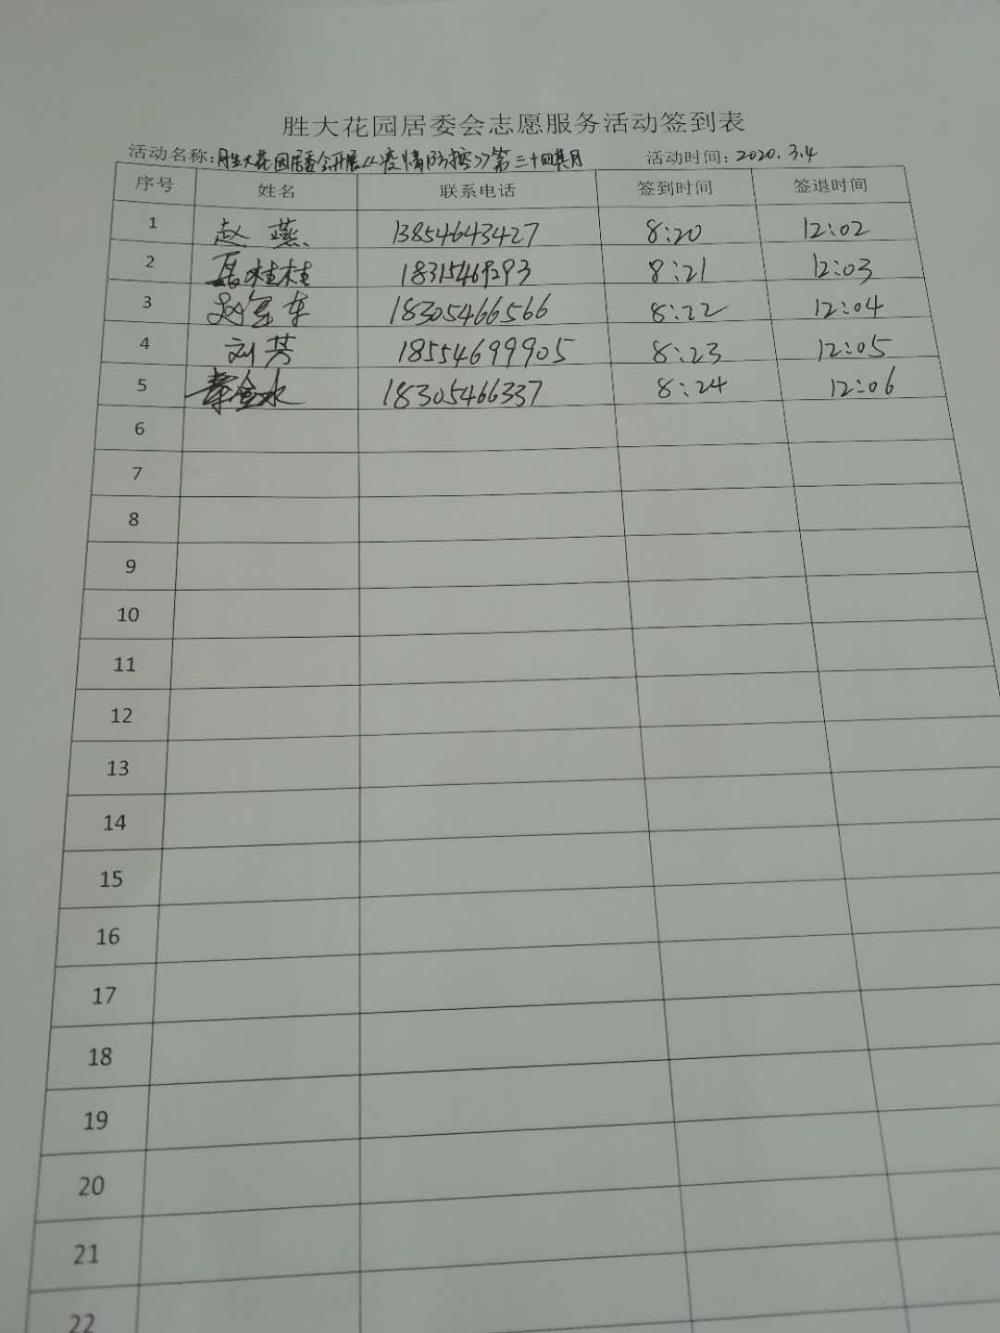 胜大花园居委会志愿服务活动签到表
活动名称:胜大花园居委会开展《疫情防控》第三十四期 活动时间: 2020.3.4
序号 姓名 联系电话 签到时间 签退时间
1 赵燕 13854643427 8:20 12:02
2 桂桂 18315469293 8:21 12:03
3 赵 18305466566 8:22 12:04
4 刘芳 18554699905 8:23 12:05
5 金水 18305466337 8:24 12:06
6
7
8
9
10
11
12
13
14
15
16
17
18
19
20
21
22